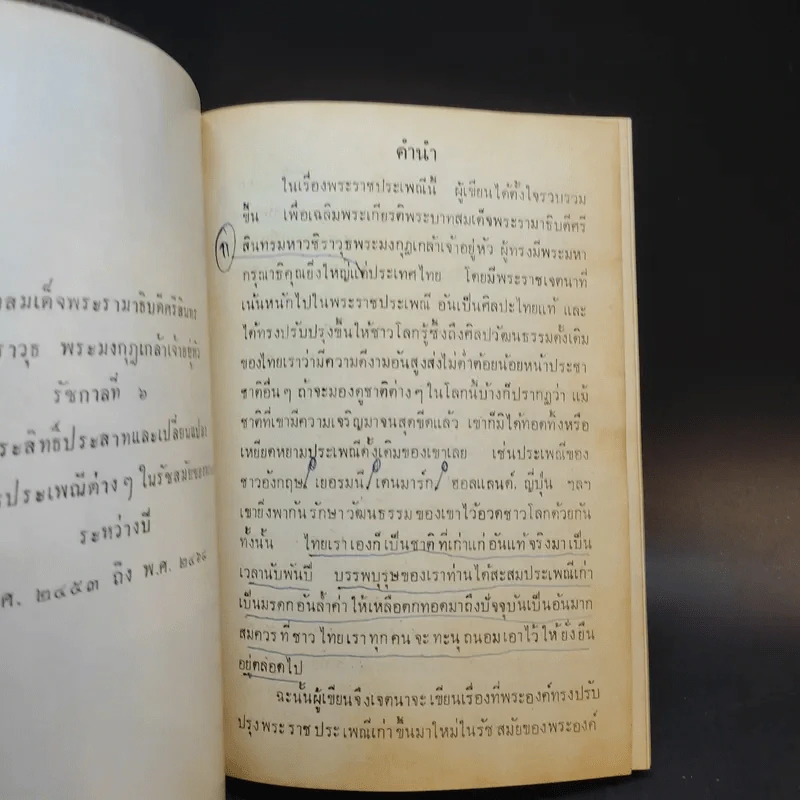 สมเด็จพระรามาธิบดีศรีสินทร
ราวุธ พระมงกุฎเกล้าเจ้าอยู่หัว
รัชกาลที่ ๖
ระสิทธิ์ประสาทและเปลี่ยนแปลง
ประเพณีต่างๆ ในรัชสมัยของ
ระหว่างปี
ศ. ๒๔๕๓ ถึง พ.ศ. ๒๔๖๘
คำนำ
ในเรื่องพระราชประเพณีนี้ ผู้เขียนได้ตั้งใจรวบรวม
ขึ้น เพื่อเฉลิมพระเกียรติพระบาทสมเด็จพระรามาธิบดีศรี
สินทรมหาวชิราวุธพระมงกุฎเกล้าเจ้าอยู่หัว ผู้ทรงมีพระมหา
กรุณาธิคุณยิ่งใหญ่แก่ประเทศไทย โดยมีพระราชเจตนาที่
เน้นหนักไปในพระราชประเพณี อันเป็นศิลปะไทยแท้ และ
ได้ทรงปรับปรุงขึ้นให้ชาวโลกรู้ซึ้งถึงศิลปวัฒนธรรมดั้งเดิม
ของไทยเราว่ามีความดีงามอันสูงส่งไม่ต่ำต้อยน้อยหน้าประชา
ชาติอื่นๆ ถ้าจะมองดูชาติต่างๆ ในโลกนี้บ้างก็ปรากฏว่า แม้
ชาติที่เขามีความเจริญมาจนสุดขีดแล้ว เขาก็มิได้ทอดทิ้งหรือ
เหยียดหยามประเพณีดั้งเดิมของเขาเลย เช่นประเพณีของ
ชาวอังกฤษ เยอรมนี เดนมาร์ก ฮอลแลนด์, ญี่ปุ่น ฯลฯ
เขายิ่งพากันรักษาวัฒนธรรมของเขาไว้อวดชาวโลกด้วยกัน
ทั้งนั้น ไทยเราเองก็เป็นชาติที่เก่าแก่อันแท้จริงมาเป็น
เวลานับพันปี บรรพบุรุษของเราท่านได้สะสมประเพณีเก่า
เป็นมรดกอันล้ำค่าให้เหลือตกทอดมาถึงปัจจุบันเป็นอันมาก
สมควรที่ชาวไทยเราทุกคนจะทะนุถนอมเอาไว้ให้ยั่งยืน
อยู่ตลอดไป
ฉะนั้นผู้เขียนจึงเจตนาจะเขียนเรื่องที่พระองค์ทรงปรับ
ปรุงพระราชประเพณีเก่าขึ้นมาใหม่ในรัชสมัยของพระองค์